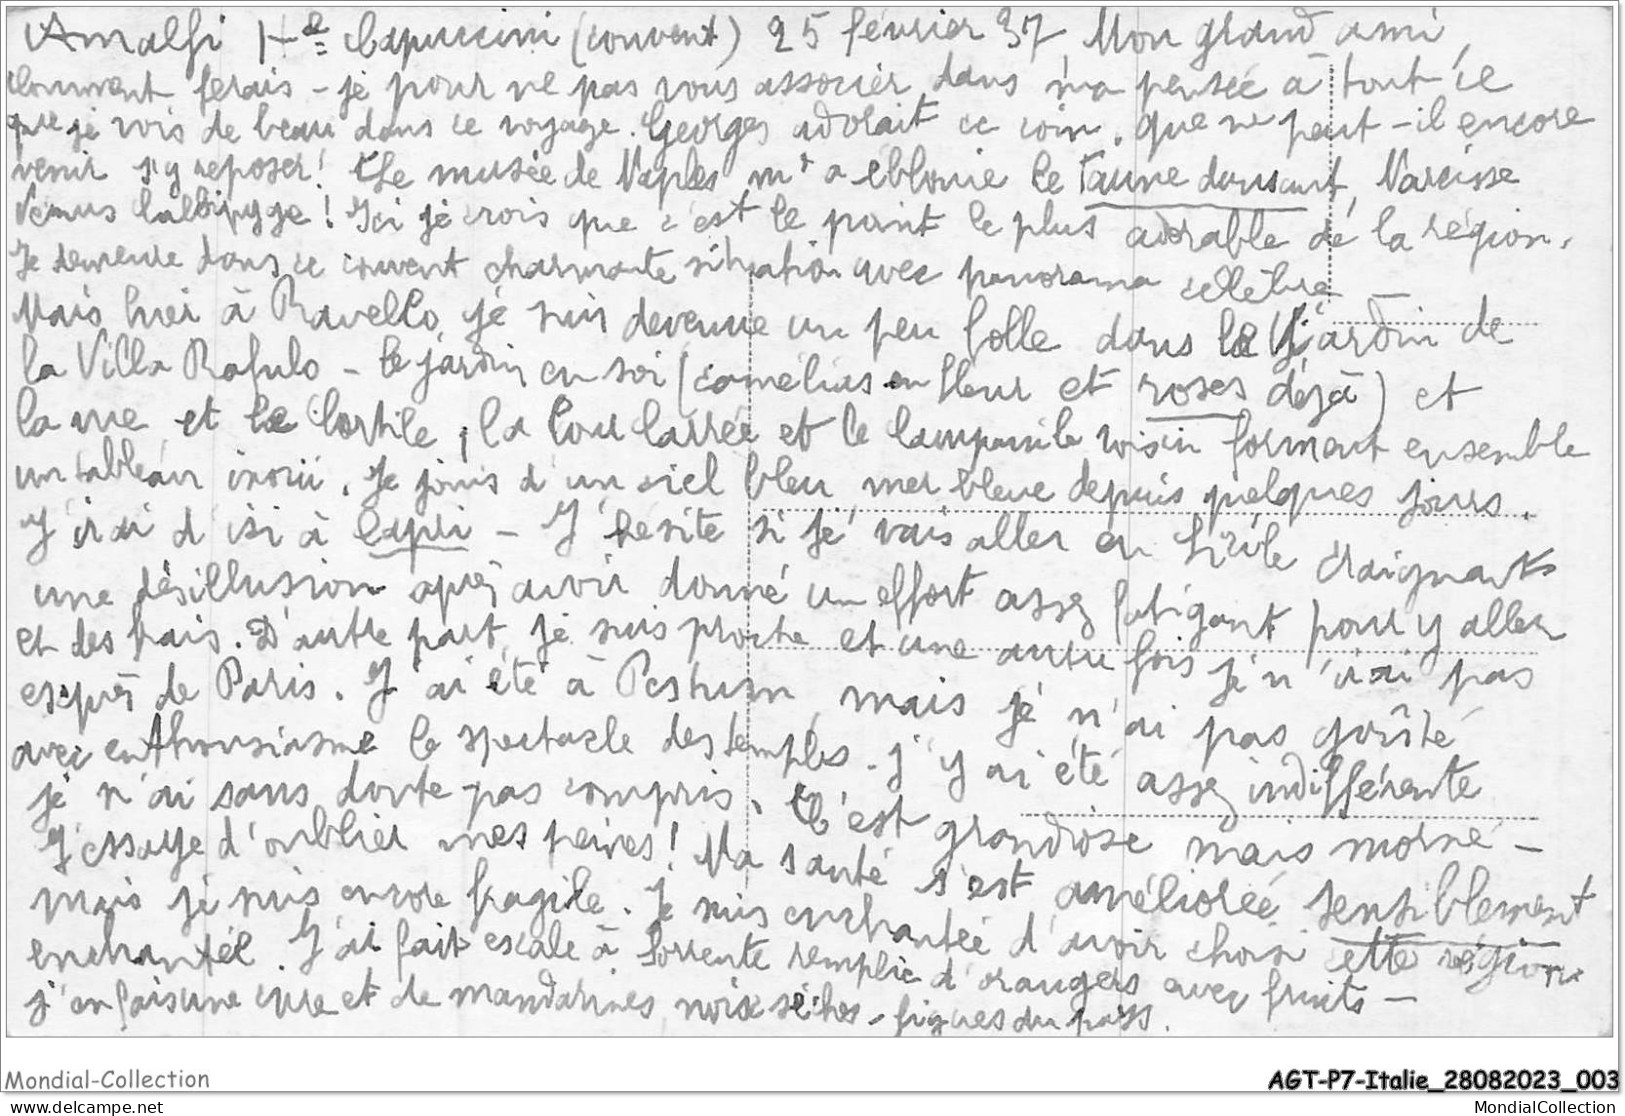 Amalfi H^el Capuccini (couvent) 25 février 37 Mon grand ami,
Comment ferais-je pour ne pas vous associer dans ma pensée à tout ce
que je vois de beau dans ce voyage. Georges adorait ce coin, que ne peut-il encore
venir s'y reposer! Le musée de Naples m'a éblouie le Faune dansant, Narcisse
Vénus Callipyge! Ici je crois que c'est le point le plus adorable de la région.
Je demeure dans ce couvent charmante situation avec panorama célèbre
Mais hier à Ravello, je suis devenue un peu folle dans le Jardin de
la Villa Rufulo - le jardin en soi (camélias en fleur et roses déjà) et
la vue et le Cortile, la Cour carrée et le campanile voisin forment ensemble
un tableau inouï. Je jouis d'un ciel bleu mer bleue depuis quelques jours.
J'irai d'ici à Capri - J'hésite si je vais aller en Sicile craignant
une désillusion après avoir donné un effort assez fatigant pour y aller
et des frais. D'autre part, je suis proche et une autre fois je n'irai pas
exprès de Paris. J'ai été à Pestum mais je n'ai pas goûté
avec enthousiasme le spectacle des temples. J'y ai été assez indifférente
je n'ai sans doute pas compris. C'est grandiose mais morne -
J'essaye d'oublier mes peines! Ma santé s'est améliorée sensiblement
mais je suis encore fragile. Je suis enchantée d'avoir choisi cette région
enchantée. J'ai fait escale à Sorrente remplie d'orangers avec fruits -
j'en fais une cure et de mandarines noix sèches - figues du pays.
Mondial-Collection
AGT-P7-Italie_28082023_003
www.delcampe.net
MondialCollection